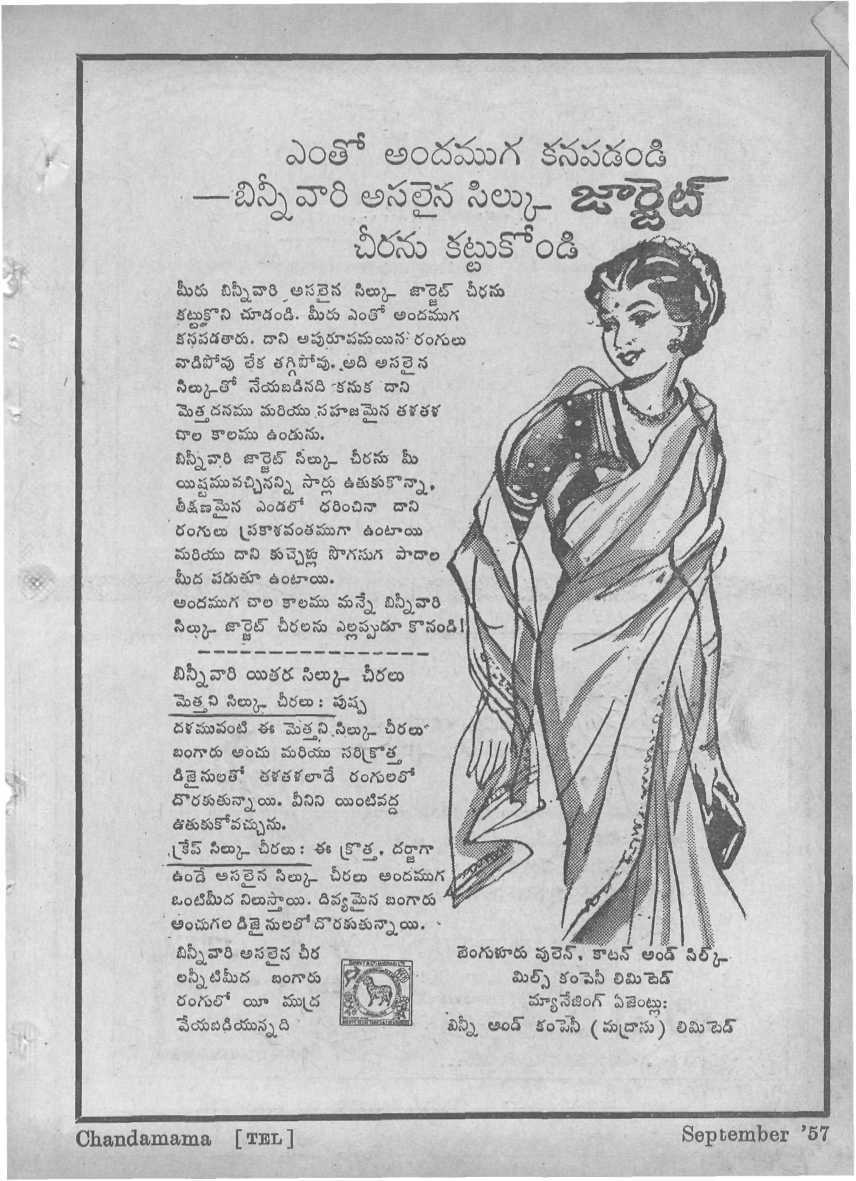 ఎంతో అందముగ కనపడండి
—బిన్నీవారి అసలైన సిల్కు జార్జెట్
చీరను కట్టుకోండి
మీరు బిన్నీవారి అసలైన సిల్కు జార్జెట్ చీరను
కట్టుకొని చూడండి. మీరు ఎంతో అందముగ
కనపడతారు. దాని అపురూపమయిన రంగులు
వాడిపోవు లేక తగ్గిపోవు. అది అసలైన
సిల్కుతో నేయబడినది కనుక దాని
మెత్తదనము మరియు సహజమైన తళతళ
చాల కాలము ఉండును.
బిన్నీవారి జార్జెట్ సిల్కు చీరను మీ
యిష్టమువచ్చినన్ని సార్లు ఉతుకుకొన్నా,
తీక్షణమైన ఎండలో ధరించినా దాని
రంగులు ప్రకాశవంతముగా ఉంటాయి
మరియు దాని కుచ్చెళ్లు సొగసుగ పాదాల
మీద పడుతూ ఉంటాయి.
అందముగ చాల కాలము మన్నే బిన్నీవారి
సిల్కు జార్జెట్ చీరలను ఎల్లప్పుడూ కొనండి!
బిన్నీవారి యితర సిల్కు చీరలు
మెత్తని సిల్కు చీరలు: పుష్ప
దళమువంటి ఈ మెత్తని సిల్కు చీరలు
బంగారు అంచు మరియు సరిక్రొత్త
డిజైనులతో తళతళలాడే రంగులలో
దొరకుతున్నాయి. వీనిని యింటివద్ద
ఉతుకుకోవచ్చును.
క్రేప్ సిల్కు చీరలు: ఈ క్రొత్త, దర్జాగా
ఉండే అసలైన సిల్కు చీరలు అందముగ
ఒంటిమీద నిలుస్తాయి. దివ్యమైన బంగారు
అంచుగల డిజైనులలో దొరకుతున్నాయి.
బిన్నీవారి అసలైన చీర
లన్నీటిమీద బంగారు
రంగులో యీ ముద్ర
వేయబడియున్నది
బెంగుళూరు వులెన్, కాటన్ అండ్ సిల్క్
మిల్స్ కంపెనీ లిమిటెడ్
మ్యానేజింగ్ ఏజెంట్లు:
బిన్నీ అండ్ కంపెనీ (మద్రాసు) లిమిటెడ్
Chandamama [TEL]
September '57